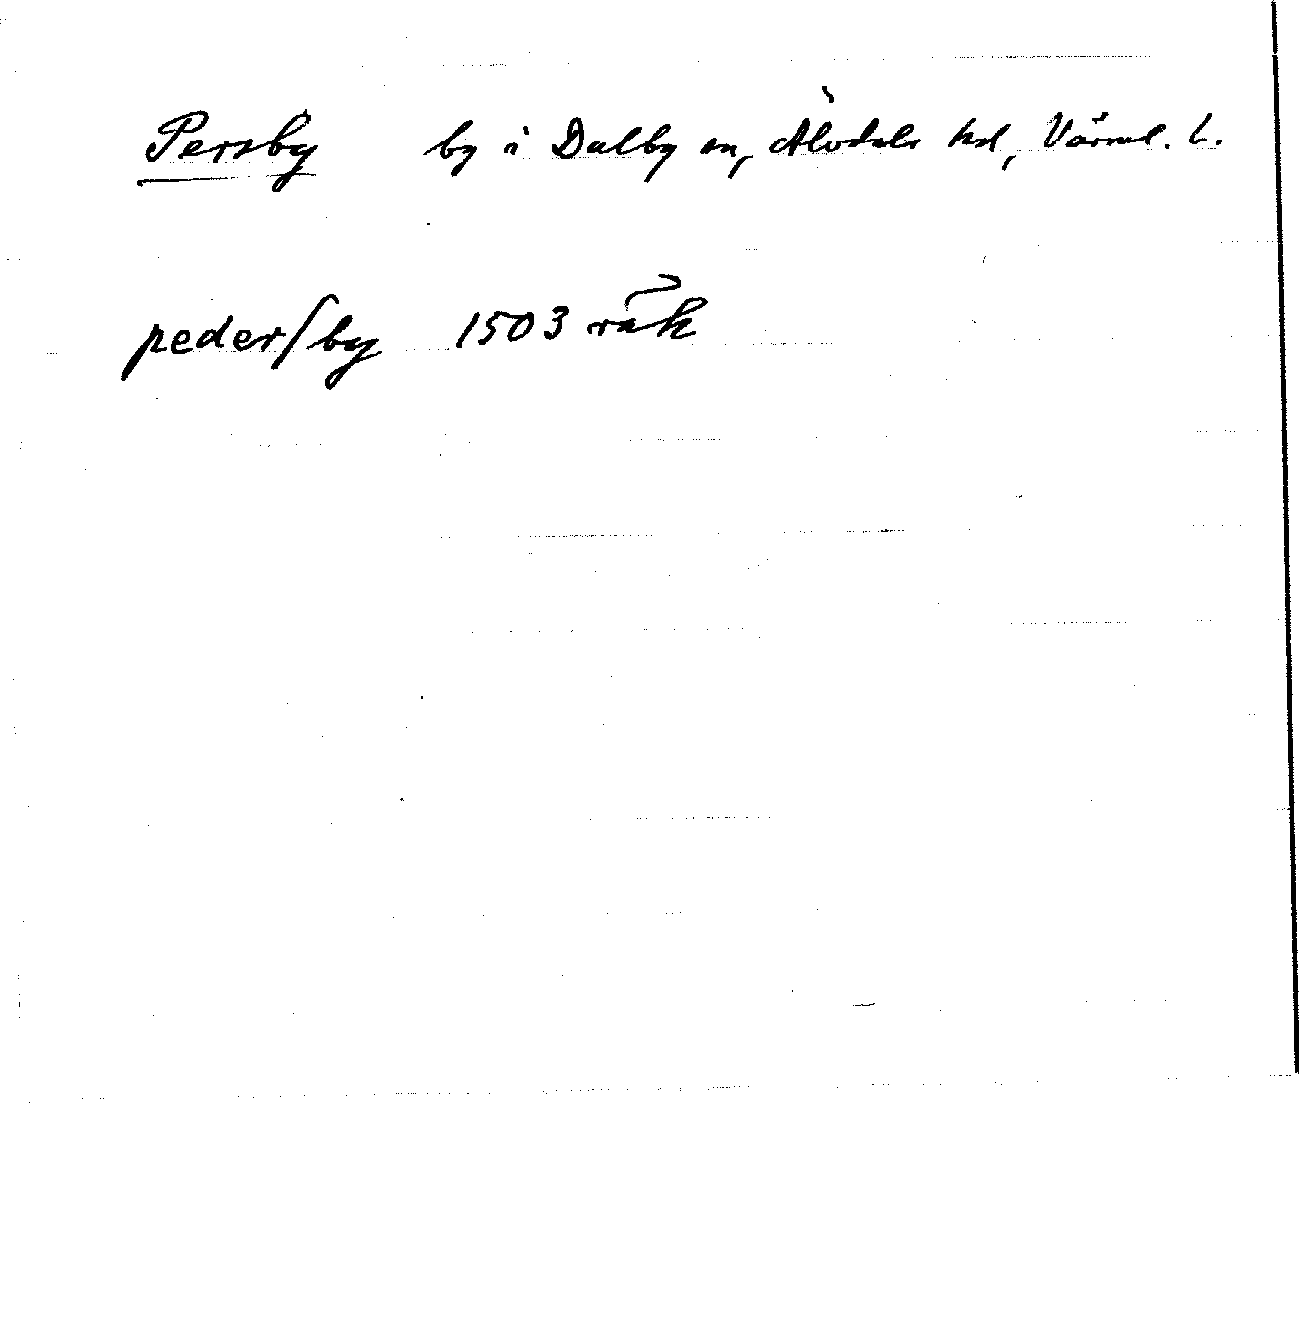 Persby by i Dalby sn, Älvdals hd, Värml. l.
pederſby 1503 räk